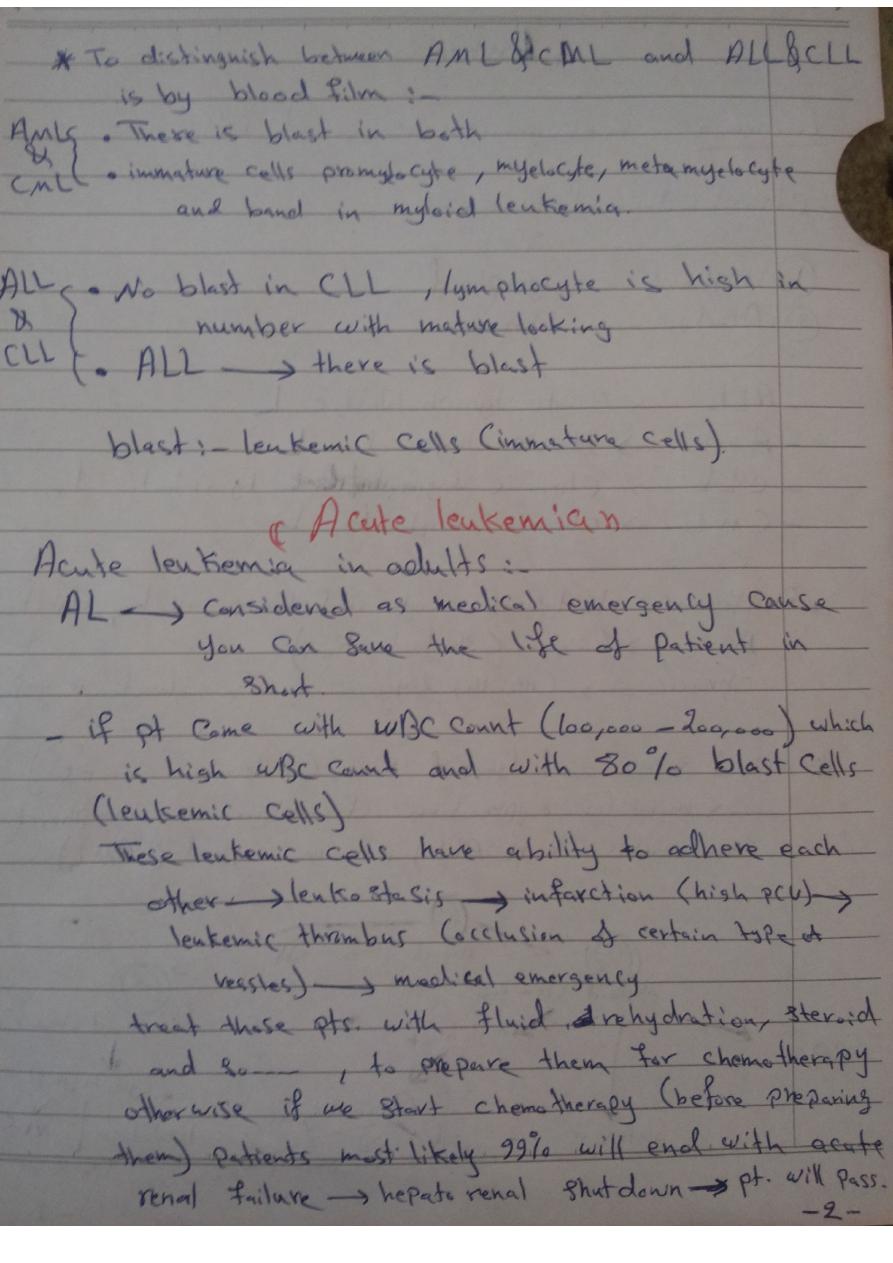 * To distinguish between AML & CML and ALL & CLL
is by blood film :-
AML & CML { • There is blast in both
• immature cells promylocyte, myelocyte, metamyelocyte
and band in myloid leukemia.
ALL & CLL { • No blast in CLL, lymphocyte is high in
number with mature looking
• ALL → there is blast
blast :- leukemic cells (immature cells).
(( Acute leukemia ))
Acute leukemia in adults :-
AL → Considered as medical emergency cause
you can save the life of patient in
short.
- if pt come with WBC count (100,000 - 200,000) which
is high WBC count and with 80% blast cells
(leukemic cells)
These leukemic cells have ability to adhere each
other → leukostasis → infarction (high pcv) →
leukemic thrombus (occlusion of certain type of
vessles) → medical emergency
treat those pts. with fluid, rehydration, steroid
and so ----, to prepare them for chemotherapy
otherwise if we start chemotherapy (before preparing
them) patients most likely 99% will end with acute
renal failure → hepato renal shutdown → pt. will pass.
-2-